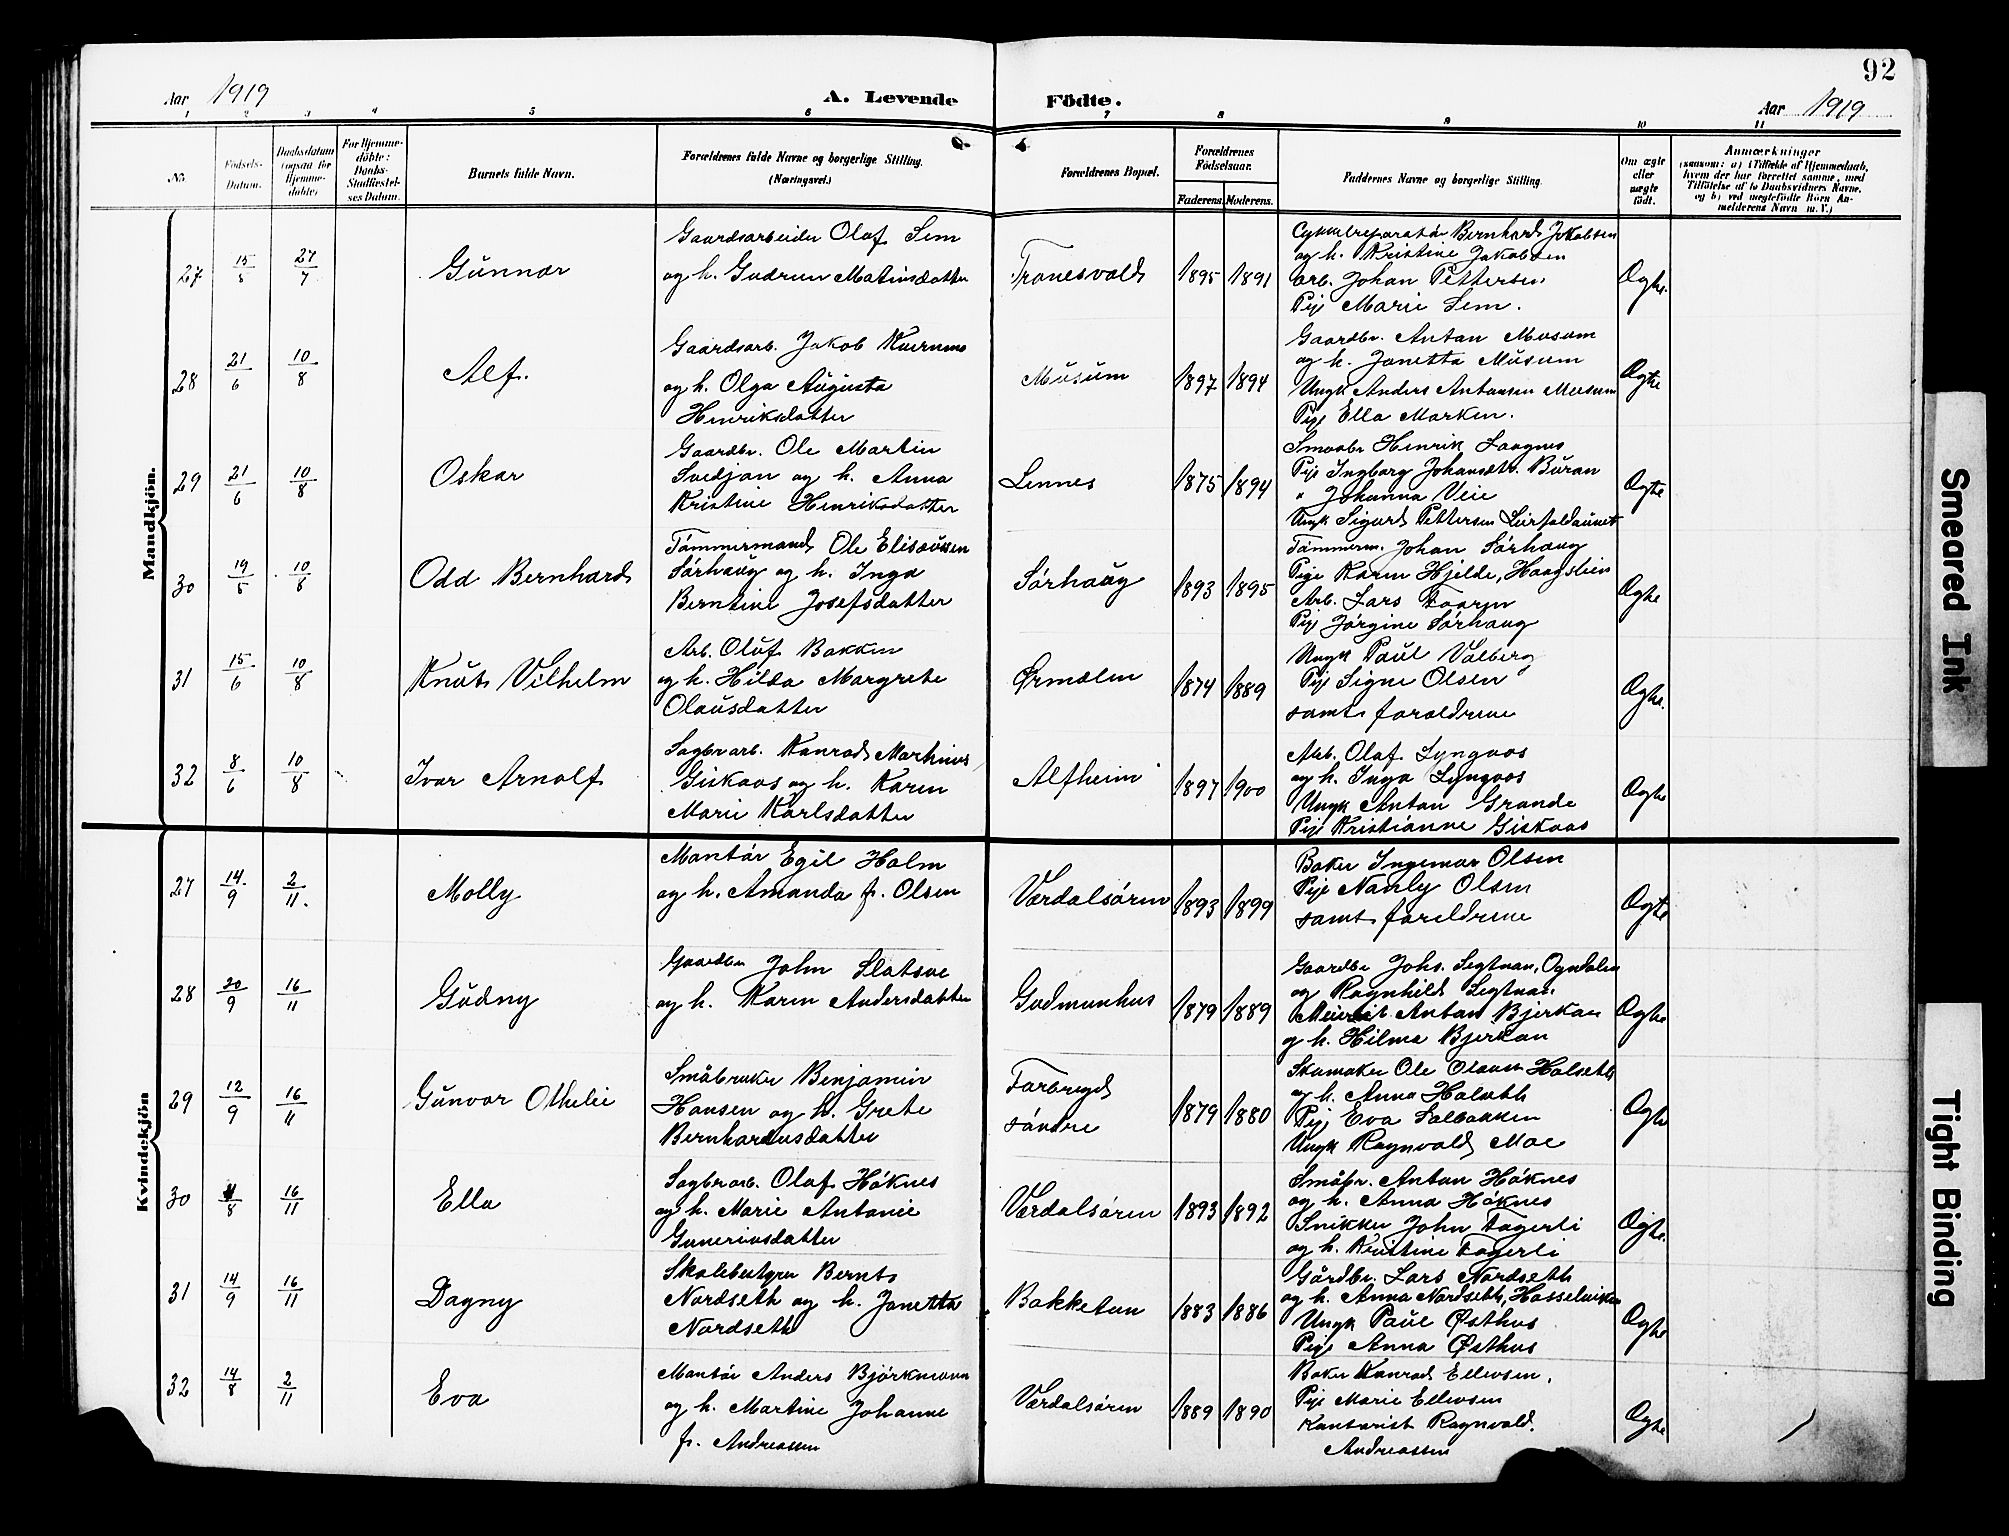 92
Aar 1919 A. Levende Födte. Aar 1919
1 2 3 4 5 6 7 8 9 10 11
No.
Födsels-
Datum.
Daabsdatum
(ogsaa for
Hjemme-
döbte)
For Hjemme-
döbte:
Daabs-
Stadfæstel-
ses Datum.
Barnets fulde Navn.
Forældrenes fulde Navne og borgerlige Stilling.
(Næringsvei.)
Forældrenes Bopæl.
Forældrenes
Födselsaar.
Faderens. Moderens.
Faddernes Navne og borgerlige Stilling.
Om ægte
eller
uægte
födt.
Anmærkninger
(saasom: a) i Tilfælde af Hjemmedaab,
hvem der har forrettet samme, med
Tilföielse af to Daabsvidners Navne,
og b) ved uægtefödte Börn An-
melderens Navn m. V.)
Mandkjön.
27 15/5 27/7 Gunnar
Gaardsarbeider Olaf Sem
og h. Gudrun Matinsdatter
Tronesvold 1895 1891
Cykkelreparatör Bernhard Jakobsen
og h. Kristine Jakobsen
Arb. Johan Pettersen
Pige Marie Sem.
Ægte.
28 21/6 10/8 Alf.
Gaardsarb. Jakob Kvernmo
og h. Olga Augusta
Henriksdatter
Musum 1897 1894
Gaardbr. Antan Musum
og h. Janetta Musum
Ungk Anders Antonsen Musum
Pige Ella Marken.
Ægte
29 21/6 10/8 Oskar
Gaardbr. Ole Martin
Svedjan og h. Anna
Kristine Henriksdatter
Lennes 1875 1894
Smaabr Henrik
Pige Ingborg Johansdtr. Buran
" Johanna Veie
Ungk Sigurd Pettersen Leirfaldaunet
Ægte
30 19/5 10/8 Odd Bernhard
Tömmermand Ole Eliseussen
Sörhaug og h. Inga
Berntine Josefsdatter
Sörhaug 1893 1895
Tömmerm. Johan Sörhaug
Pige Karen Hjelde,
Arb. Lars Faaren
Pige Jörgine Sörhaug
Ægte
31 15/6 10/8 Knut Vilhelm
Arb. Oluf Bakken
og h. Hilda Margrete
Olausdatter
Ørmælen 1874 1889
Ungk Paul Valberg
Pige Signe Olsen
samt foræeldrene
Ægte.
32 8/6 10/8 Ivar Arnolf
Sagbrarb. Konrad Martinus
Giskaas og h. Karen
Marie Karlsdatter
Alfheim 1897 1900
Arb. Olaf Lyngaas
og h. Inga Lyngaas
Ungk Antan Grande
Pige Kristianne Giskaas
Ægte
Kvindekjön
27 14/9 2/11 Molly
Montör Egil Holm
og h. Amanda f. Olsen
Værdalsören 1893 1899
Baker Ingemar Olsen
Pige Nanly Olsen
samt foreldrene
Ægte
28 20/9 16/11 Gudny
Gaardbr John Slatsve
og h. Karen Andersdatter
Gudmunhus 1879 1889
Gaardbr Johs. Segtnan, Ogndalen
og Ragnhild Segtnan
Antan Bjerkan
og h. Hilma Bjerkan
Ægte
29 12/9 16/11 Gunvor Othelie
Småbruker Benjamin
Hansen og h. Grete
Bernhardusdatter
Forbregd
söndre 1879 1880
Skomaker Ole Olausen Holseth
og h. Anna Holseth
Pige Eva Salbakken
Ungk Ragnvald Moe
Ægte
30 4/8 16/11 Ella
Sagbrarb. Olaf Höknes
og h. Marie Antonie
Guneriusdatter
Værdalsören 1893 1892
Småbr. Antan Höknes
og h. Anna Höknes
Snikker John Fagerli
og h. Kristine Fagerli
Ægte.
31 14/9 16/11 Dagny
Skolebestyrer Bernt
Nordseth og h. Janetta
Nordseth
Bakketun 1883 1886
Gårdbr. Lars Nordseth
og h. Anna Nordseth, Hasselviken
Ungk Paul Østhus
Pige Anna Østhus
Ægte
32 14/8 2/11 Eva
Montör Anders Björkmann
og h. Martine Johanne
f. Andreassen
Værdalsören 1889 1890
Baker Konrad Ellevsen,
Pige Marie Ellevsen
Kontorist Ragnvald.
Andreassen
Ægte
Smeared Ink
Tight Binding